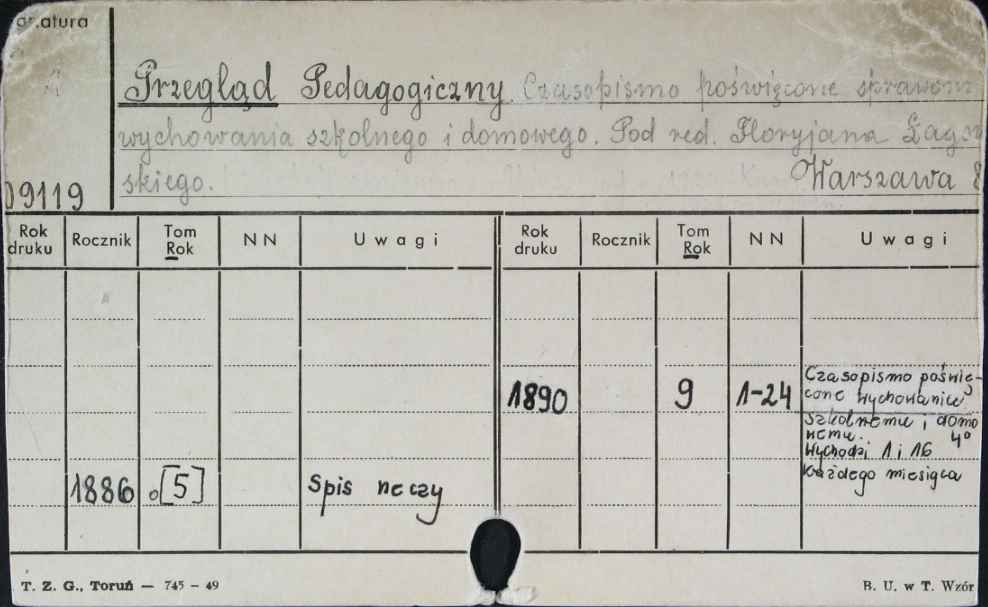 gnatura
Przegląd Pedagogiczny. Czasopismo poświęcone sprawom
wychowania szkolnego i domowego. Pod red. Floryjana Łagow
skiego. Warszawa 8
09119
Rok druku Rocznik Tom Rok NN Uwagi Rok druku Rocznik Tom Rok NN Uwagi
1890 9 1-24 Czasopismo poświę-
cone wychowaniu
szkolnemu i domo
wemu. 4°
Wychodzi 1 i 16
każdego miesiąca
1886 [5] Spis rzeczy
T. Z. G., Toruń — 745 - 49 B. U. w T. Wzór